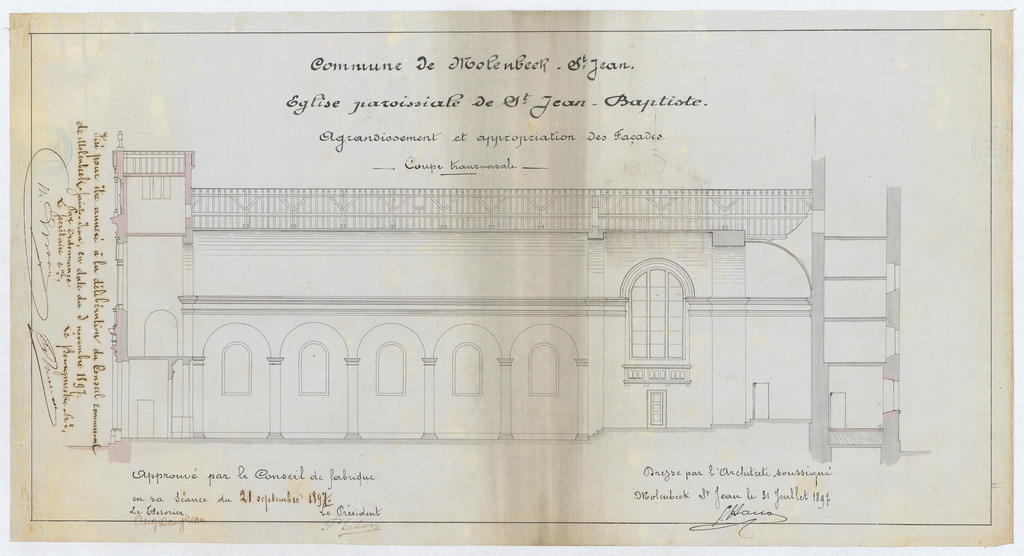 Commune de Molenbeek - St Jean.
Eglise paroissiale de St Jean - Baptiste.
Agrandissement et appropriation des Façades.
Coupe transversale
Visé pour être annexé à la délibération du Conseil communal
de Molenbeek-Saint-Jean, en date du 3 novembre 1897.
Par ordonnance:
Le Secrétaire
Le Bourgmestre
Approuvé par le Conseil de fabrique
en sa Séance du 21 septembre 1897.
Le Trésorier.
Le Président
Dressé par l'Architecte soussigné
Molenbeek St Jean le 31 Juillet 1897